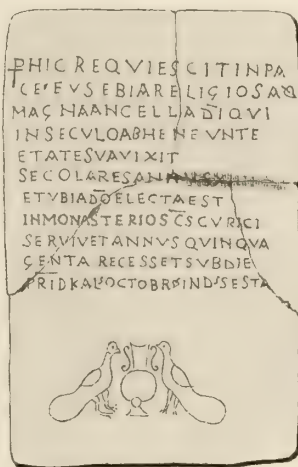 HIC REQVIESCIT IN PA
CE EVSEBIA RELIGIOSA
MAGNA ANCELLA DI QVI
IN SECVLO AB HENEVNTE
ETATE SVA VIXIT
SECOLARES
ET VBI A DO ELECTA EST
IN MONASTERIO SCS CVRICI
SERVIVET ANNVS QVINQVA
GENTA RECESSET SVB DIE
PRID KAL OCTOBR IND SESTA